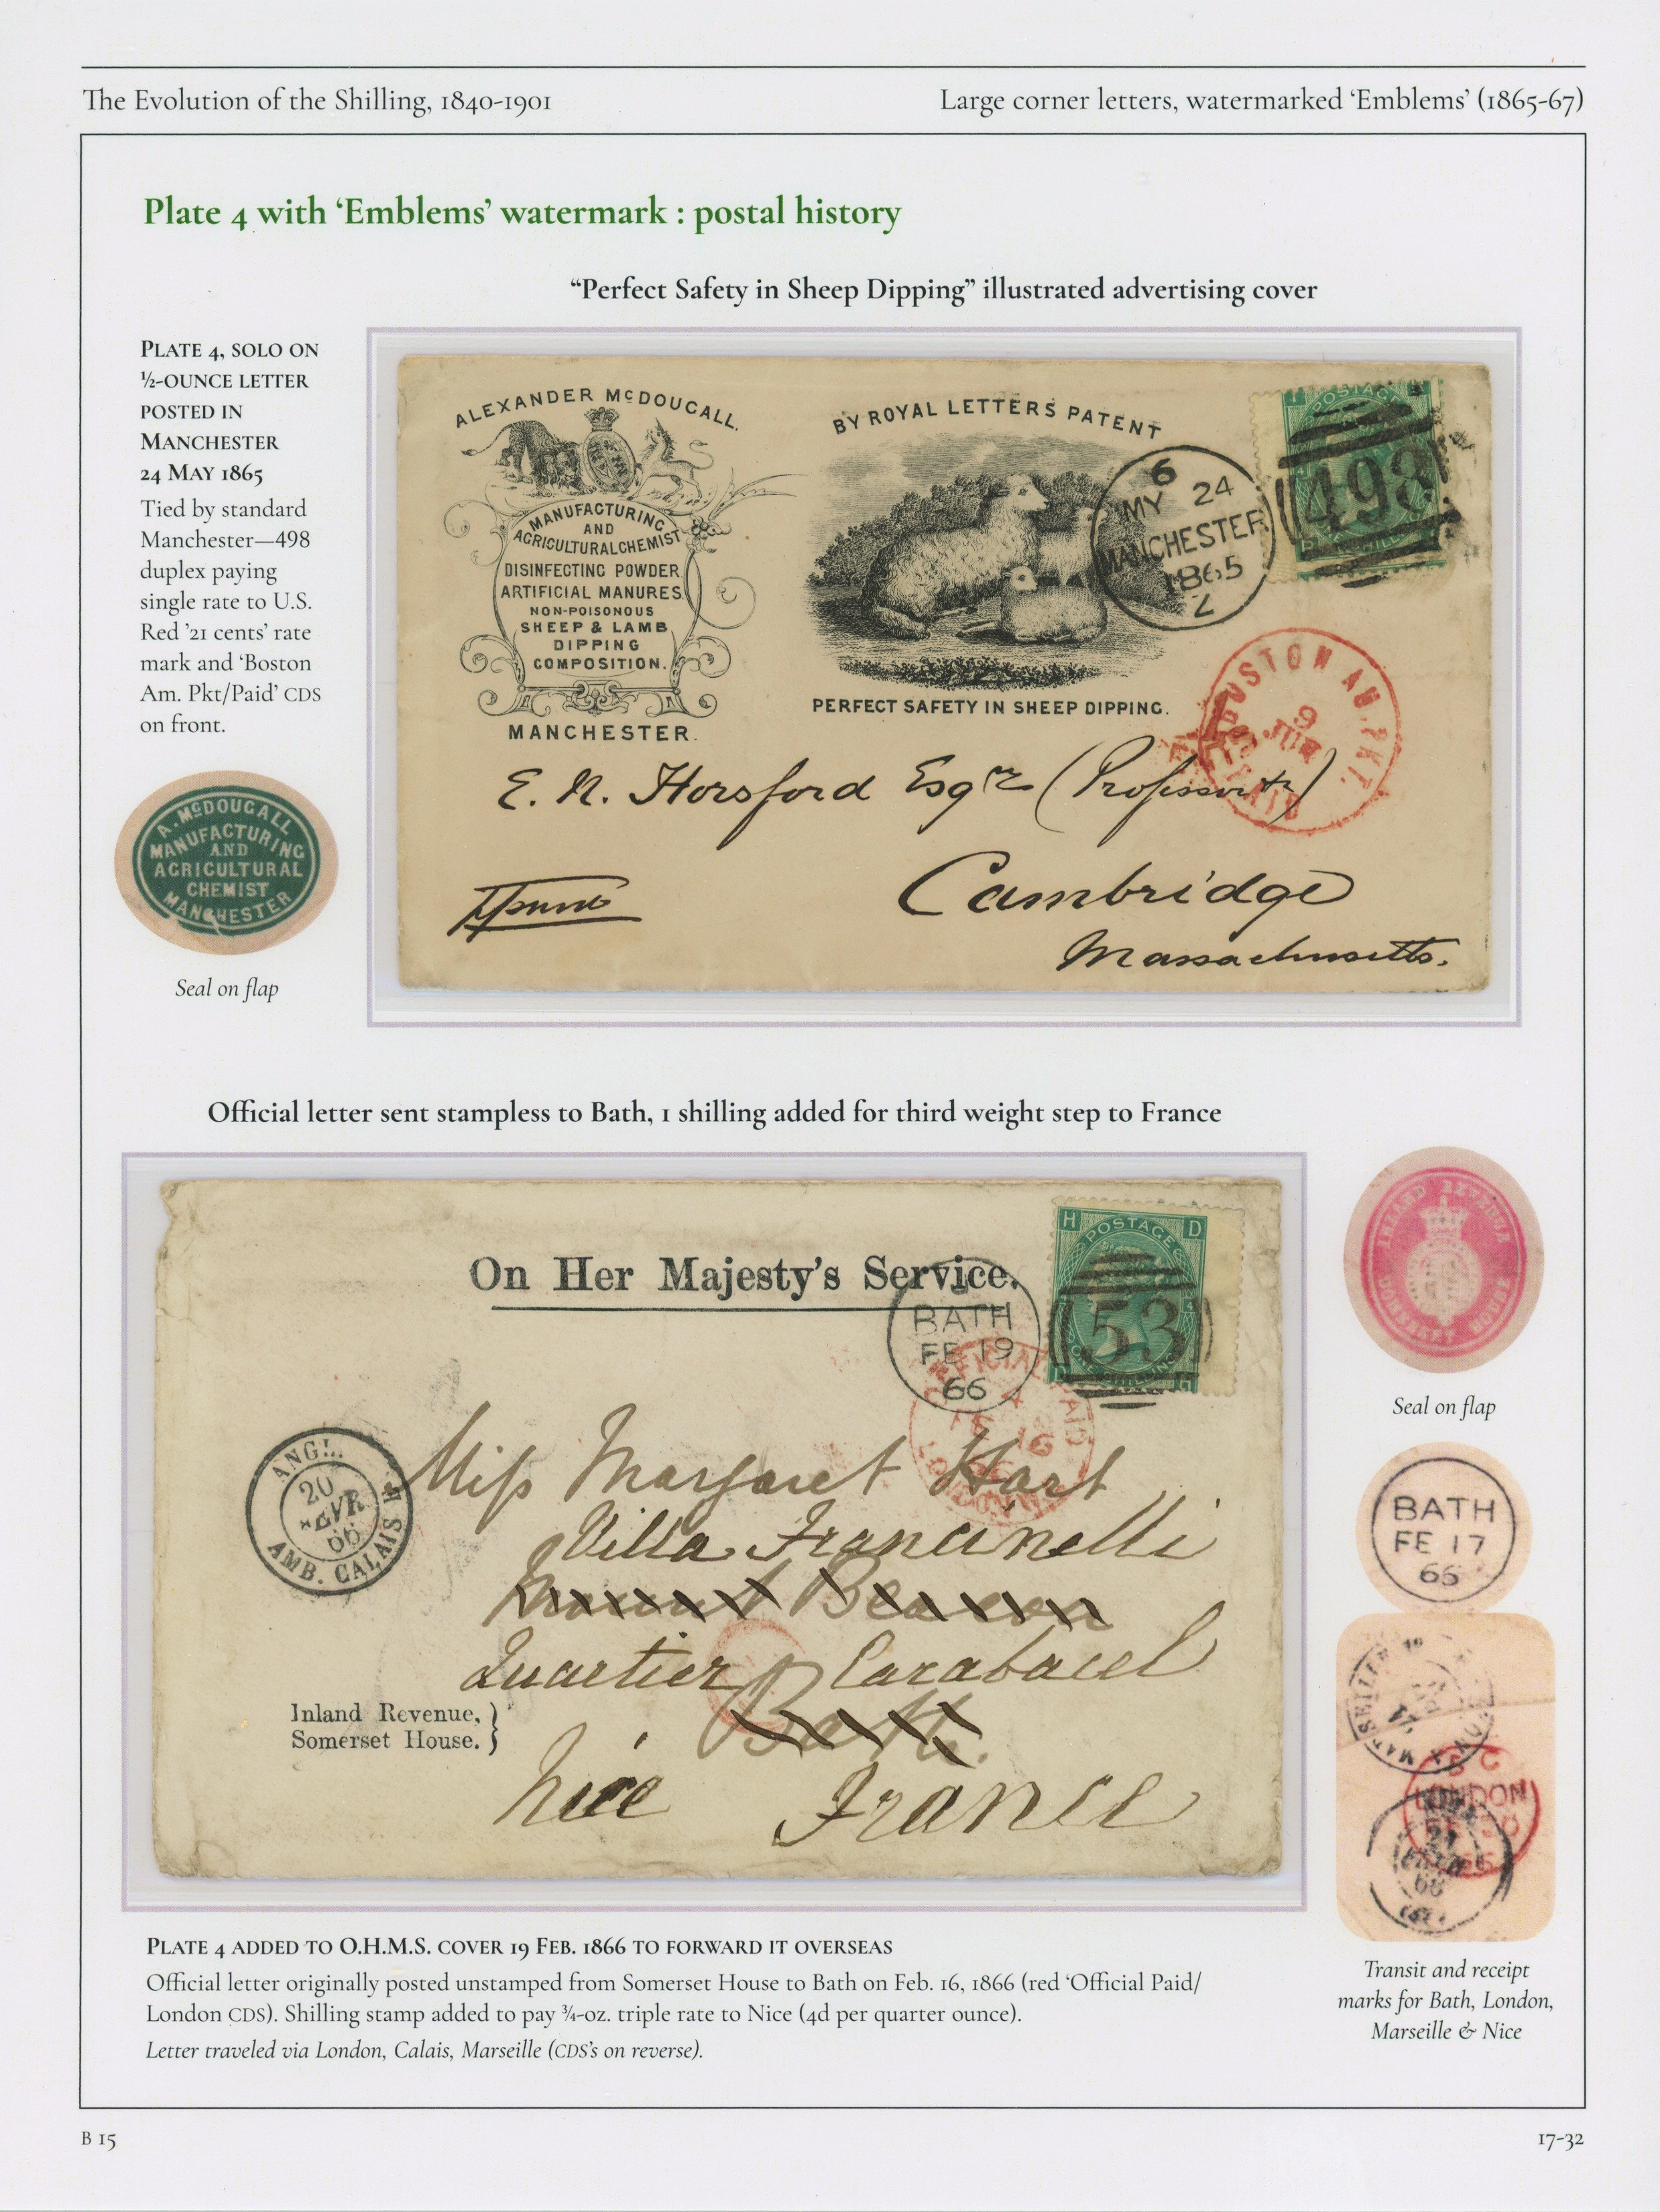 The Evolution of the Shilling, 1840-1901
Large corner letters, watermarked ‘Emblems’ (1865-67)
Plate 4 with ‘Emblems’ watermark : postal history
“Perfect Safety in Sheep Dipping” illustrated advertising cover
PLATE 4, SOLO ON
½-OUNCE LETTER
POSTED IN
MANCHESTER
24 MAY 1865
Tied by standard
Manchester—498
duplex paying
single rate to U.S.
Red ’21 cents’ rate
mark and ‘Boston
Am. Pkt/Paid’ CDS
on front.
ALEXANDER McDOUGALL.
MANUFACTURING
AND
AGRICULTURAL CHEMIST
DISINFECTING POWDER
ARTIFICIAL MANURES
NON-POISONOUS
SHEEP & LAMB
DIPPING
COMPOSITION.
MANCHESTER.
BY ROYAL LETTERS PATENT
PERFECT SAFETY IN SHEEP DIPPING.
6
MY 24
MANCHESTER
1865
Z
POSTAGE
498
BOSTON AM. PKT.
9
JUN
PAID
E. N. Horsford Esqre (Professor &c)
Cambridge
Massachusetts.
A. McDOUGALL
MANUFACTURING
AND
AGRICULTURAL
CHEMIST
MANCHESTER
Seal on flap
Official letter sent stampless to Bath, 1 shilling added for third weight step to France
On Her Majesty's Service.
BATH
FE 19
66
H D
POSTAGE
4
53
ONE SHILLING
OFFICIAL PAID
FE 16
LONDON
ANGL.
20
FEVR
66
AMB. CALAIS
Miss Margaret Hart
Villa Francinelli
Mount Beacon
Quartier Carabacel
Bath.
Nice France
Inland Revenue,
Somerset House.
INLAND REVENUE
SOMERSET HOUSE
Seal on flap
BATH
FE 17
66
MARSEILLE
LONDON
Transit and receipt
marks for Bath, London,
Marseille & Nice
PLATE 4 ADDED TO O.H.M.S. COVER 19 FEB. 1866 TO FORWARD IT OVERSEAS
Official letter originally posted unstamped from Somerset House to Bath on Feb. 16, 1866 (red ‘Official Paid/
London CDS). Shilling stamp added to pay ¾-oz. triple rate to Nice (4d per quarter ounce).
Letter traveled via London, Calais, Marseille (CDS’s on reverse).
B 15
17-32